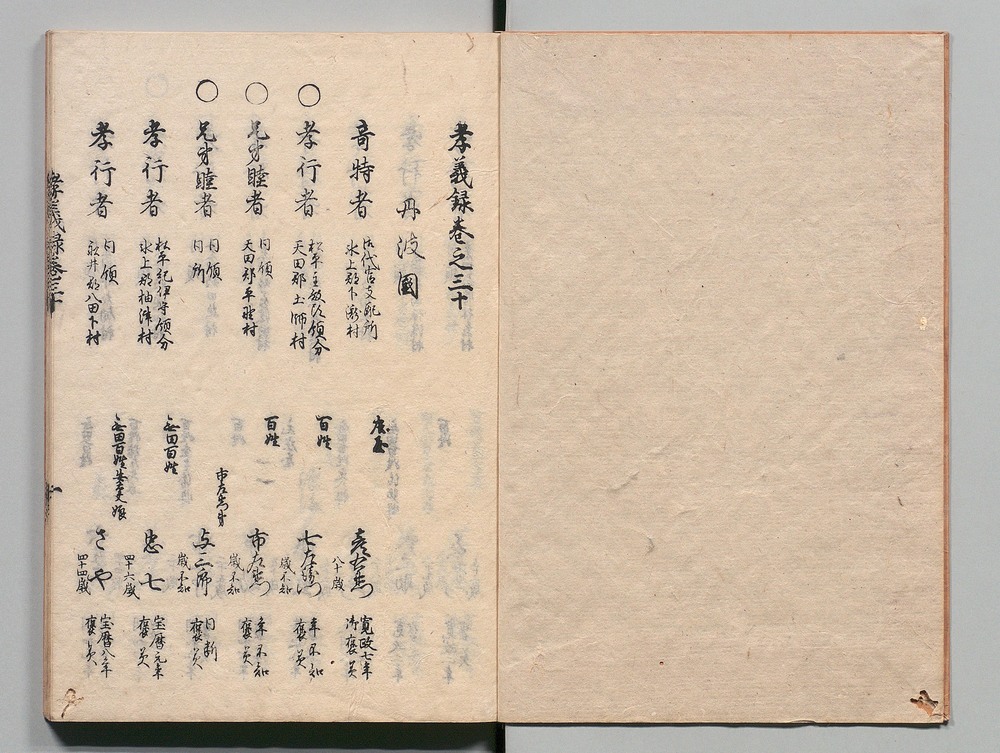 孝義録巻之三十
丹波國
奇特者
御代官支配所
氷上郡下瀧村
庄屋
彦右衛門
八十歳
寛政七年
御褒美
○
孝行者
松平主殿頭領分
天田郡土師村
百姓
七左衛門
歳不知
年不知
褒美
○
兄弟睦者
同領
天田郡平野村
百姓
市左衛門
歳不知
年不知
褒美
○
兄弟睦者
同領
同所
市左衛門弟
与三郎
歳不知
同断
褒美
孝行者
松平紀伊守領分
氷上郡柚津村
無田百姓
忠七
四十六歳
宝暦元年
褒美
孝行者
同領
八田下村
無田百姓
娘
さや
四十四歳
宝暦八年
褒美
孝義録巻三十
一